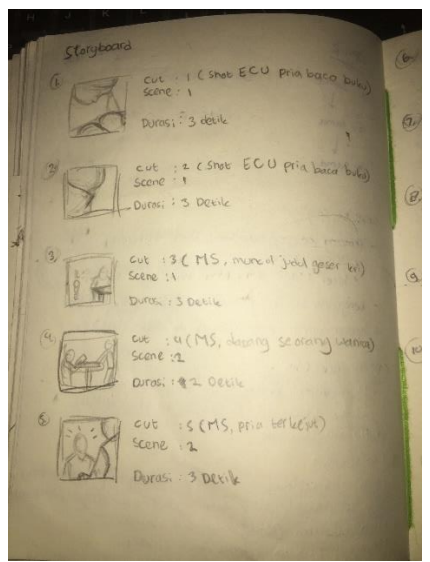 Storyboard
1.
Cut : 1 (Shot ECU pria baca buku)
Scene : 1
Durasi : 3 detik
2.
Cut : 2 (Shot ECU pria baca buku)
Scene : 1
Durasi : 3 Detik
3.
Cut : 3 (MS, muncul judul geser kri)
Scene : 1
Durasi : 3 Detik
4.
Cut : 4 (MS, datang seorang wanita)
Scene : 2
Durasi : 2 Detik
5.
Cut : 5 (MS, pria terkejut)
Scene : 2
Durasi : 3 Detik
6.
7.
8.
9
10